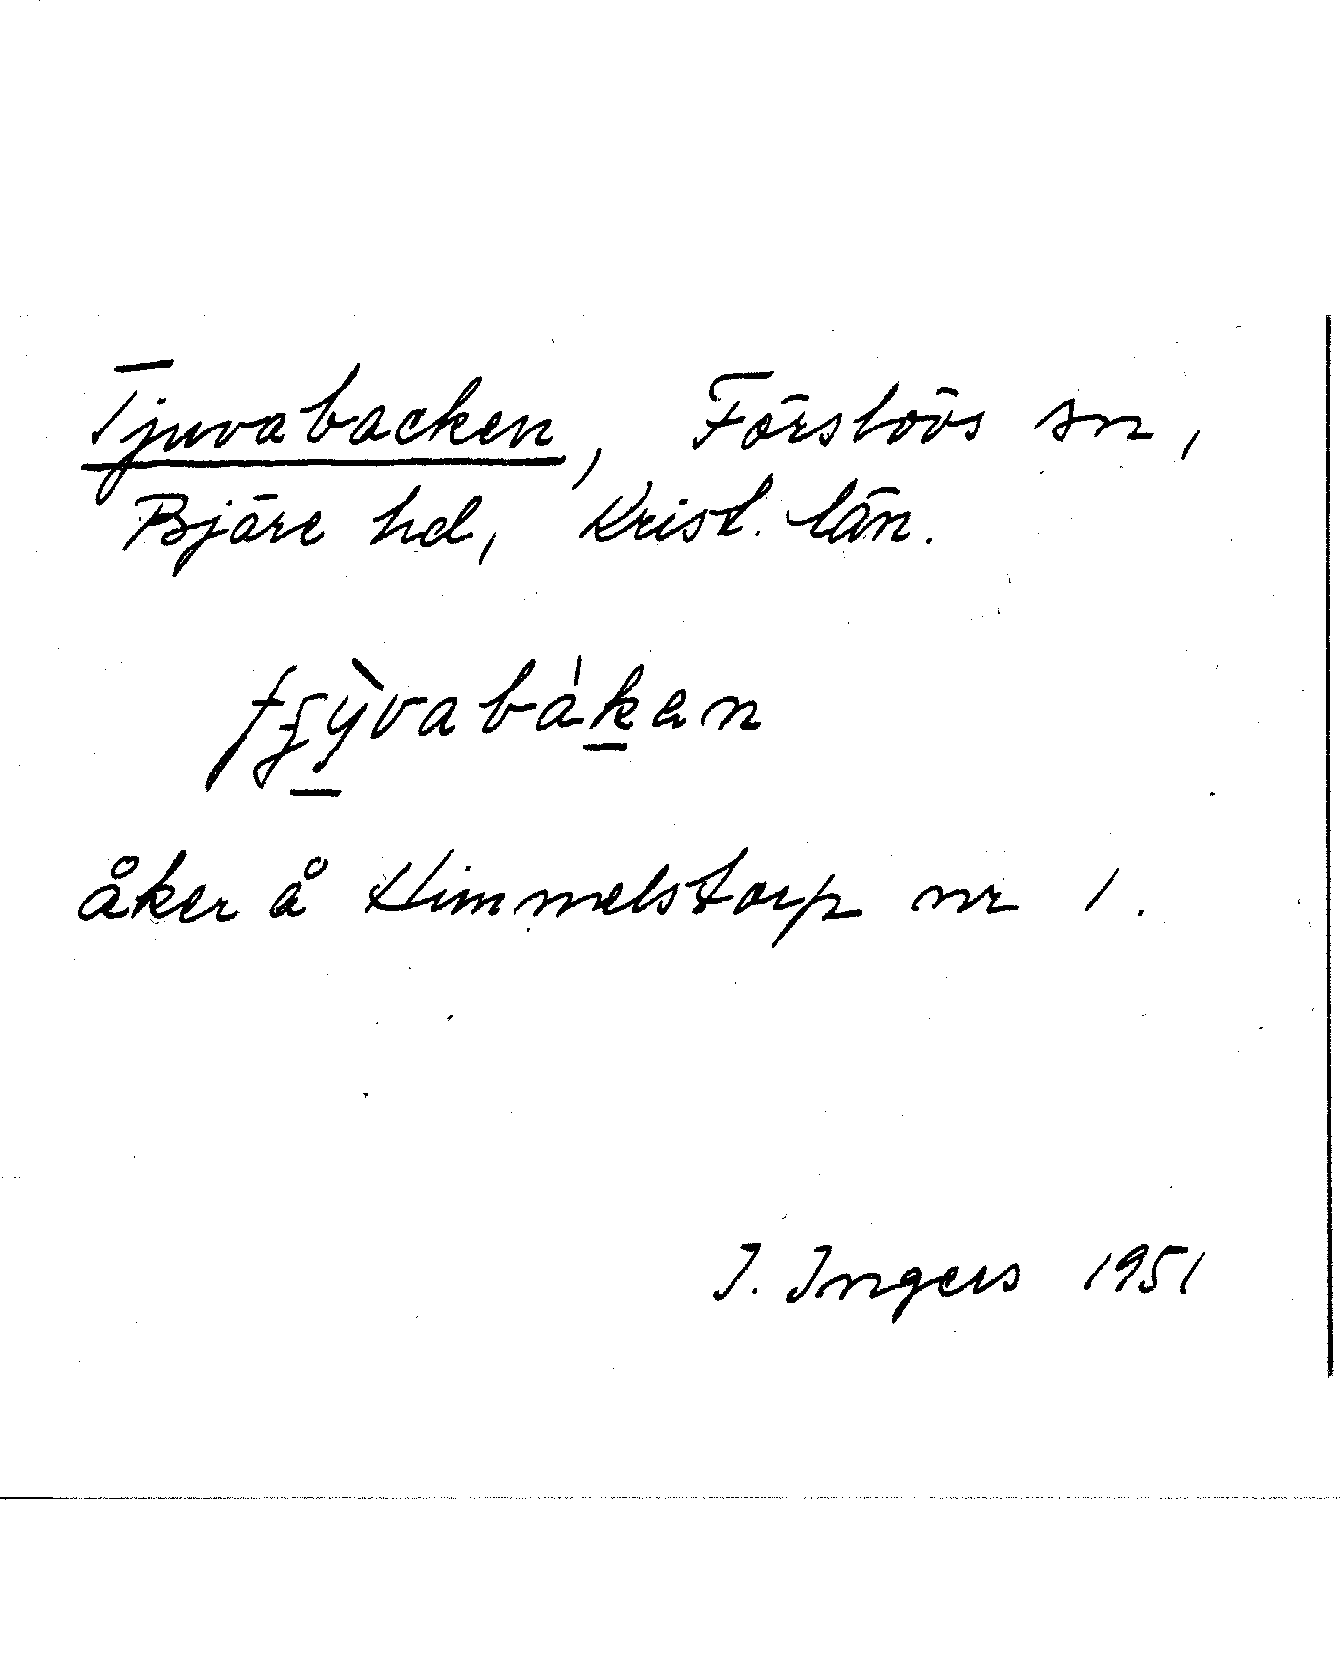 Tjuvabacken, Förslövs sn,
Bjäre hd, Krist. län.
tʃỳ̠vabàk̠en
åker å Himmelstorp nr 1.
I. Ingers 1951